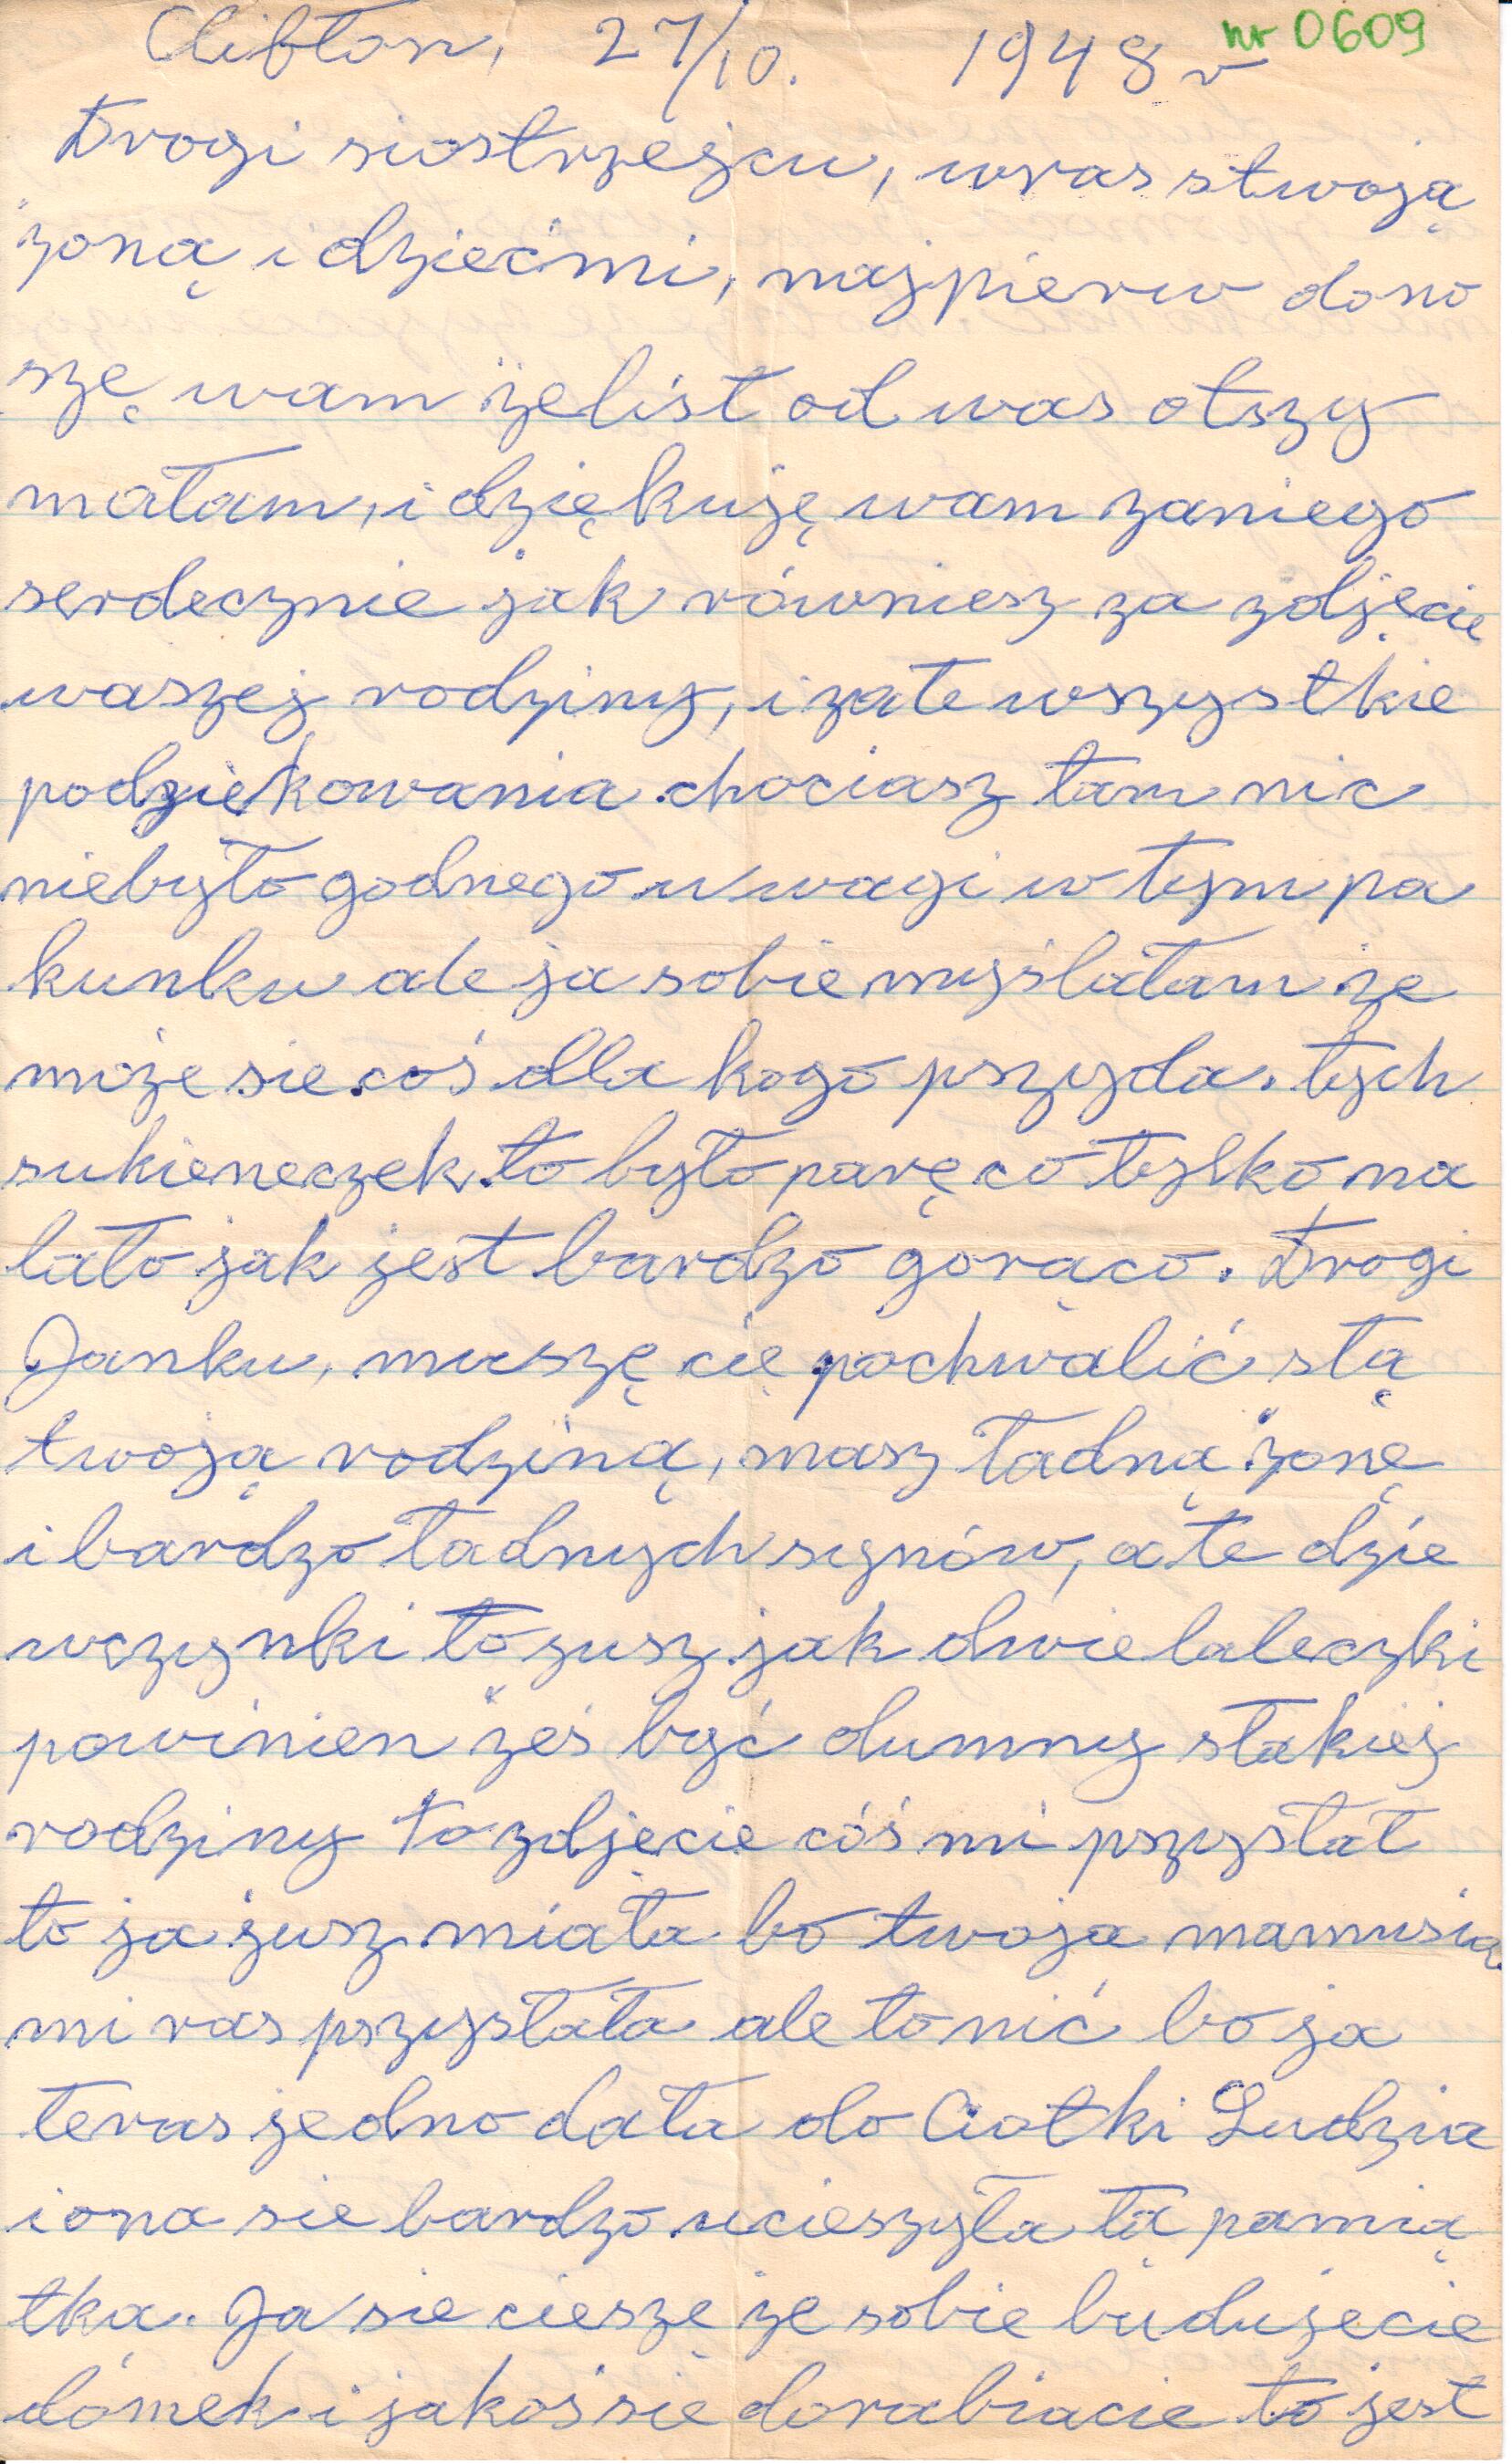 Clifton, 27/10. 1948 r
nr 0609
Drogi siostrzejcu, wras stwoją
żoną i dziećmi, najpierw dono
szę wam że list od was otszy
małam, i dziękuję wam zaniego
serdecznie jak równiesz za zdjęcie
waszej rodziny, i zate wszystkie
podziekowania chociasz tam nic
niebyło godnego uwagi w tym pa
kunku ale ja sobie myślałam że
może sie coś dla kogo pszyda. tych
sukieneczek to było parę co tylko na
lato jak jest bardzo gorąco. Drogi
Janku, muszę cię pochwalić stą
twoją rodziną, masz ładną żonę
i bardzo ładnych synów, a te dzie
wczynki to jusz jak dwie laleczki
powinien żeś być dumny stakiej
rodziny to zdjęcie cóś mi pszysłał
to ja jusz miała bo twoja mamusia
mi ras pszysłała ale to nić bo ja
teras jedno dała do Ciotki Ludzia
i ona sie bardzo ucieszyła tą pamią
tka. Ja sie cieszę że sobie budujecie
domek i jakoś sie dorabiacie to jest